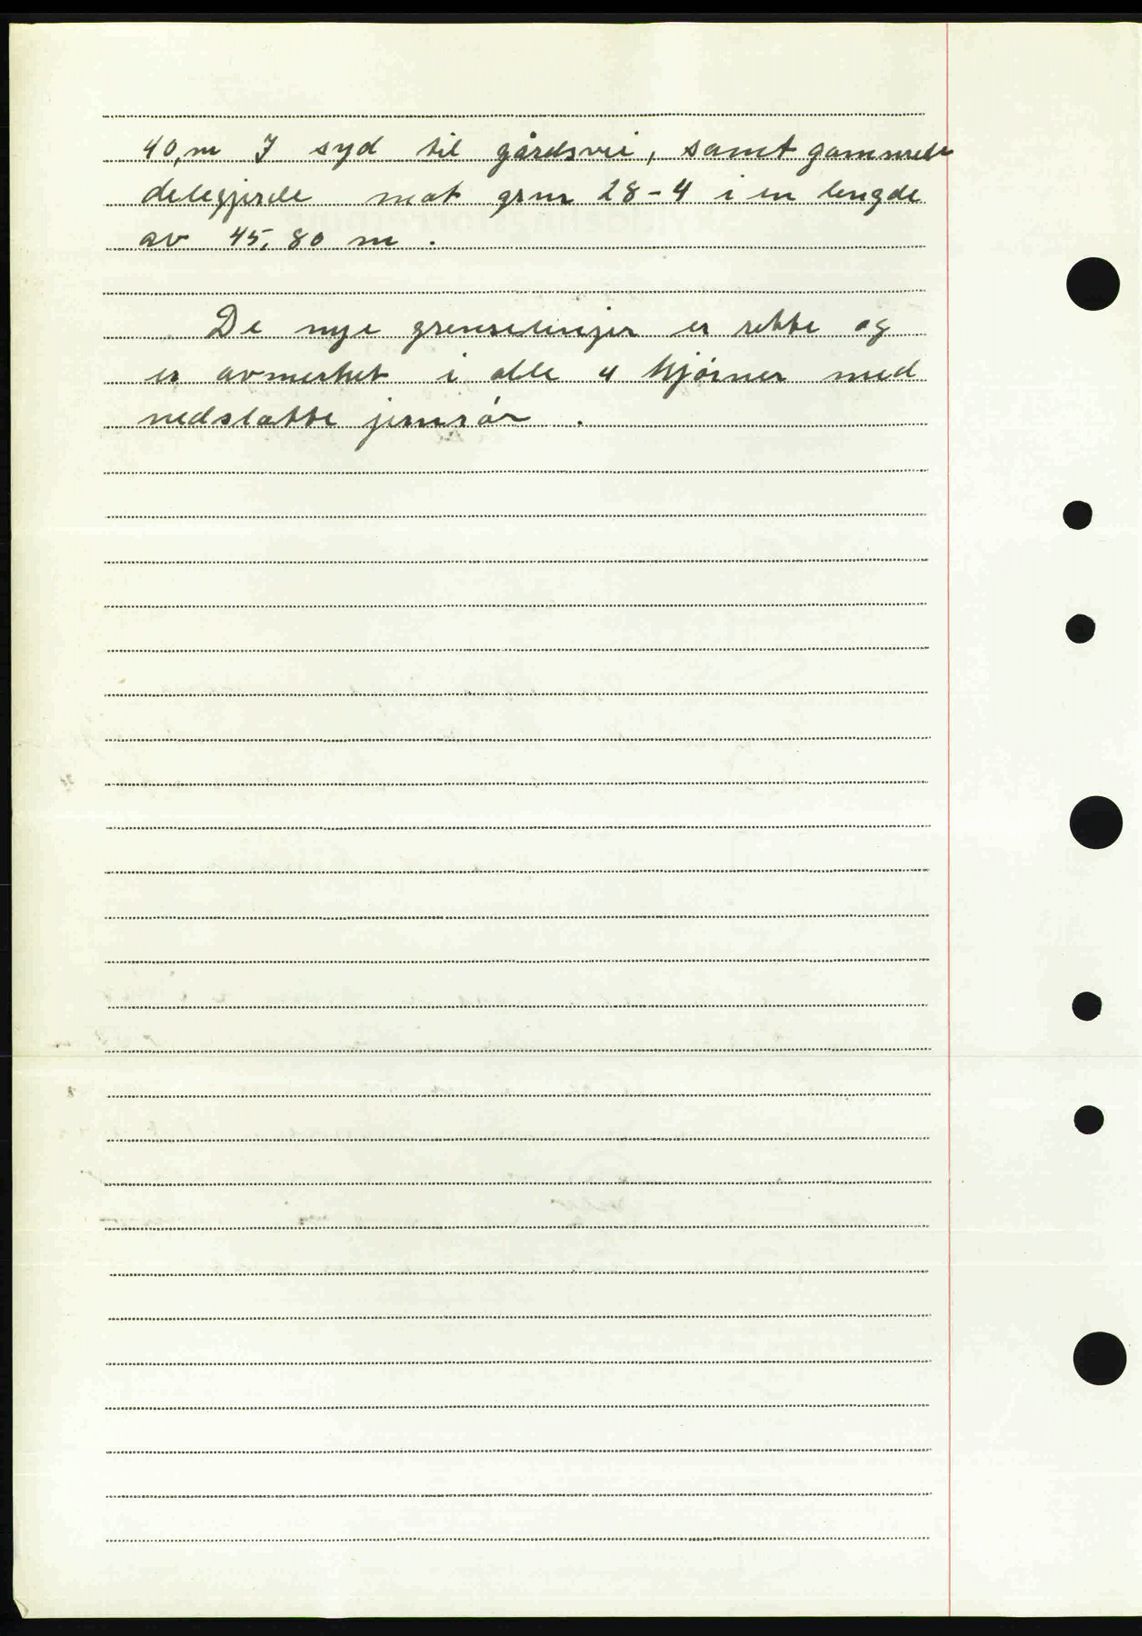 40,m I syd til gårdsvei, samt gammelt
delegjerde mot grnr 28-4 i en lengde
av 45,80 m .
De nye grenselinjer er rette og
er avmerket i alle 4 hjörner med
nedslatte jernrör .